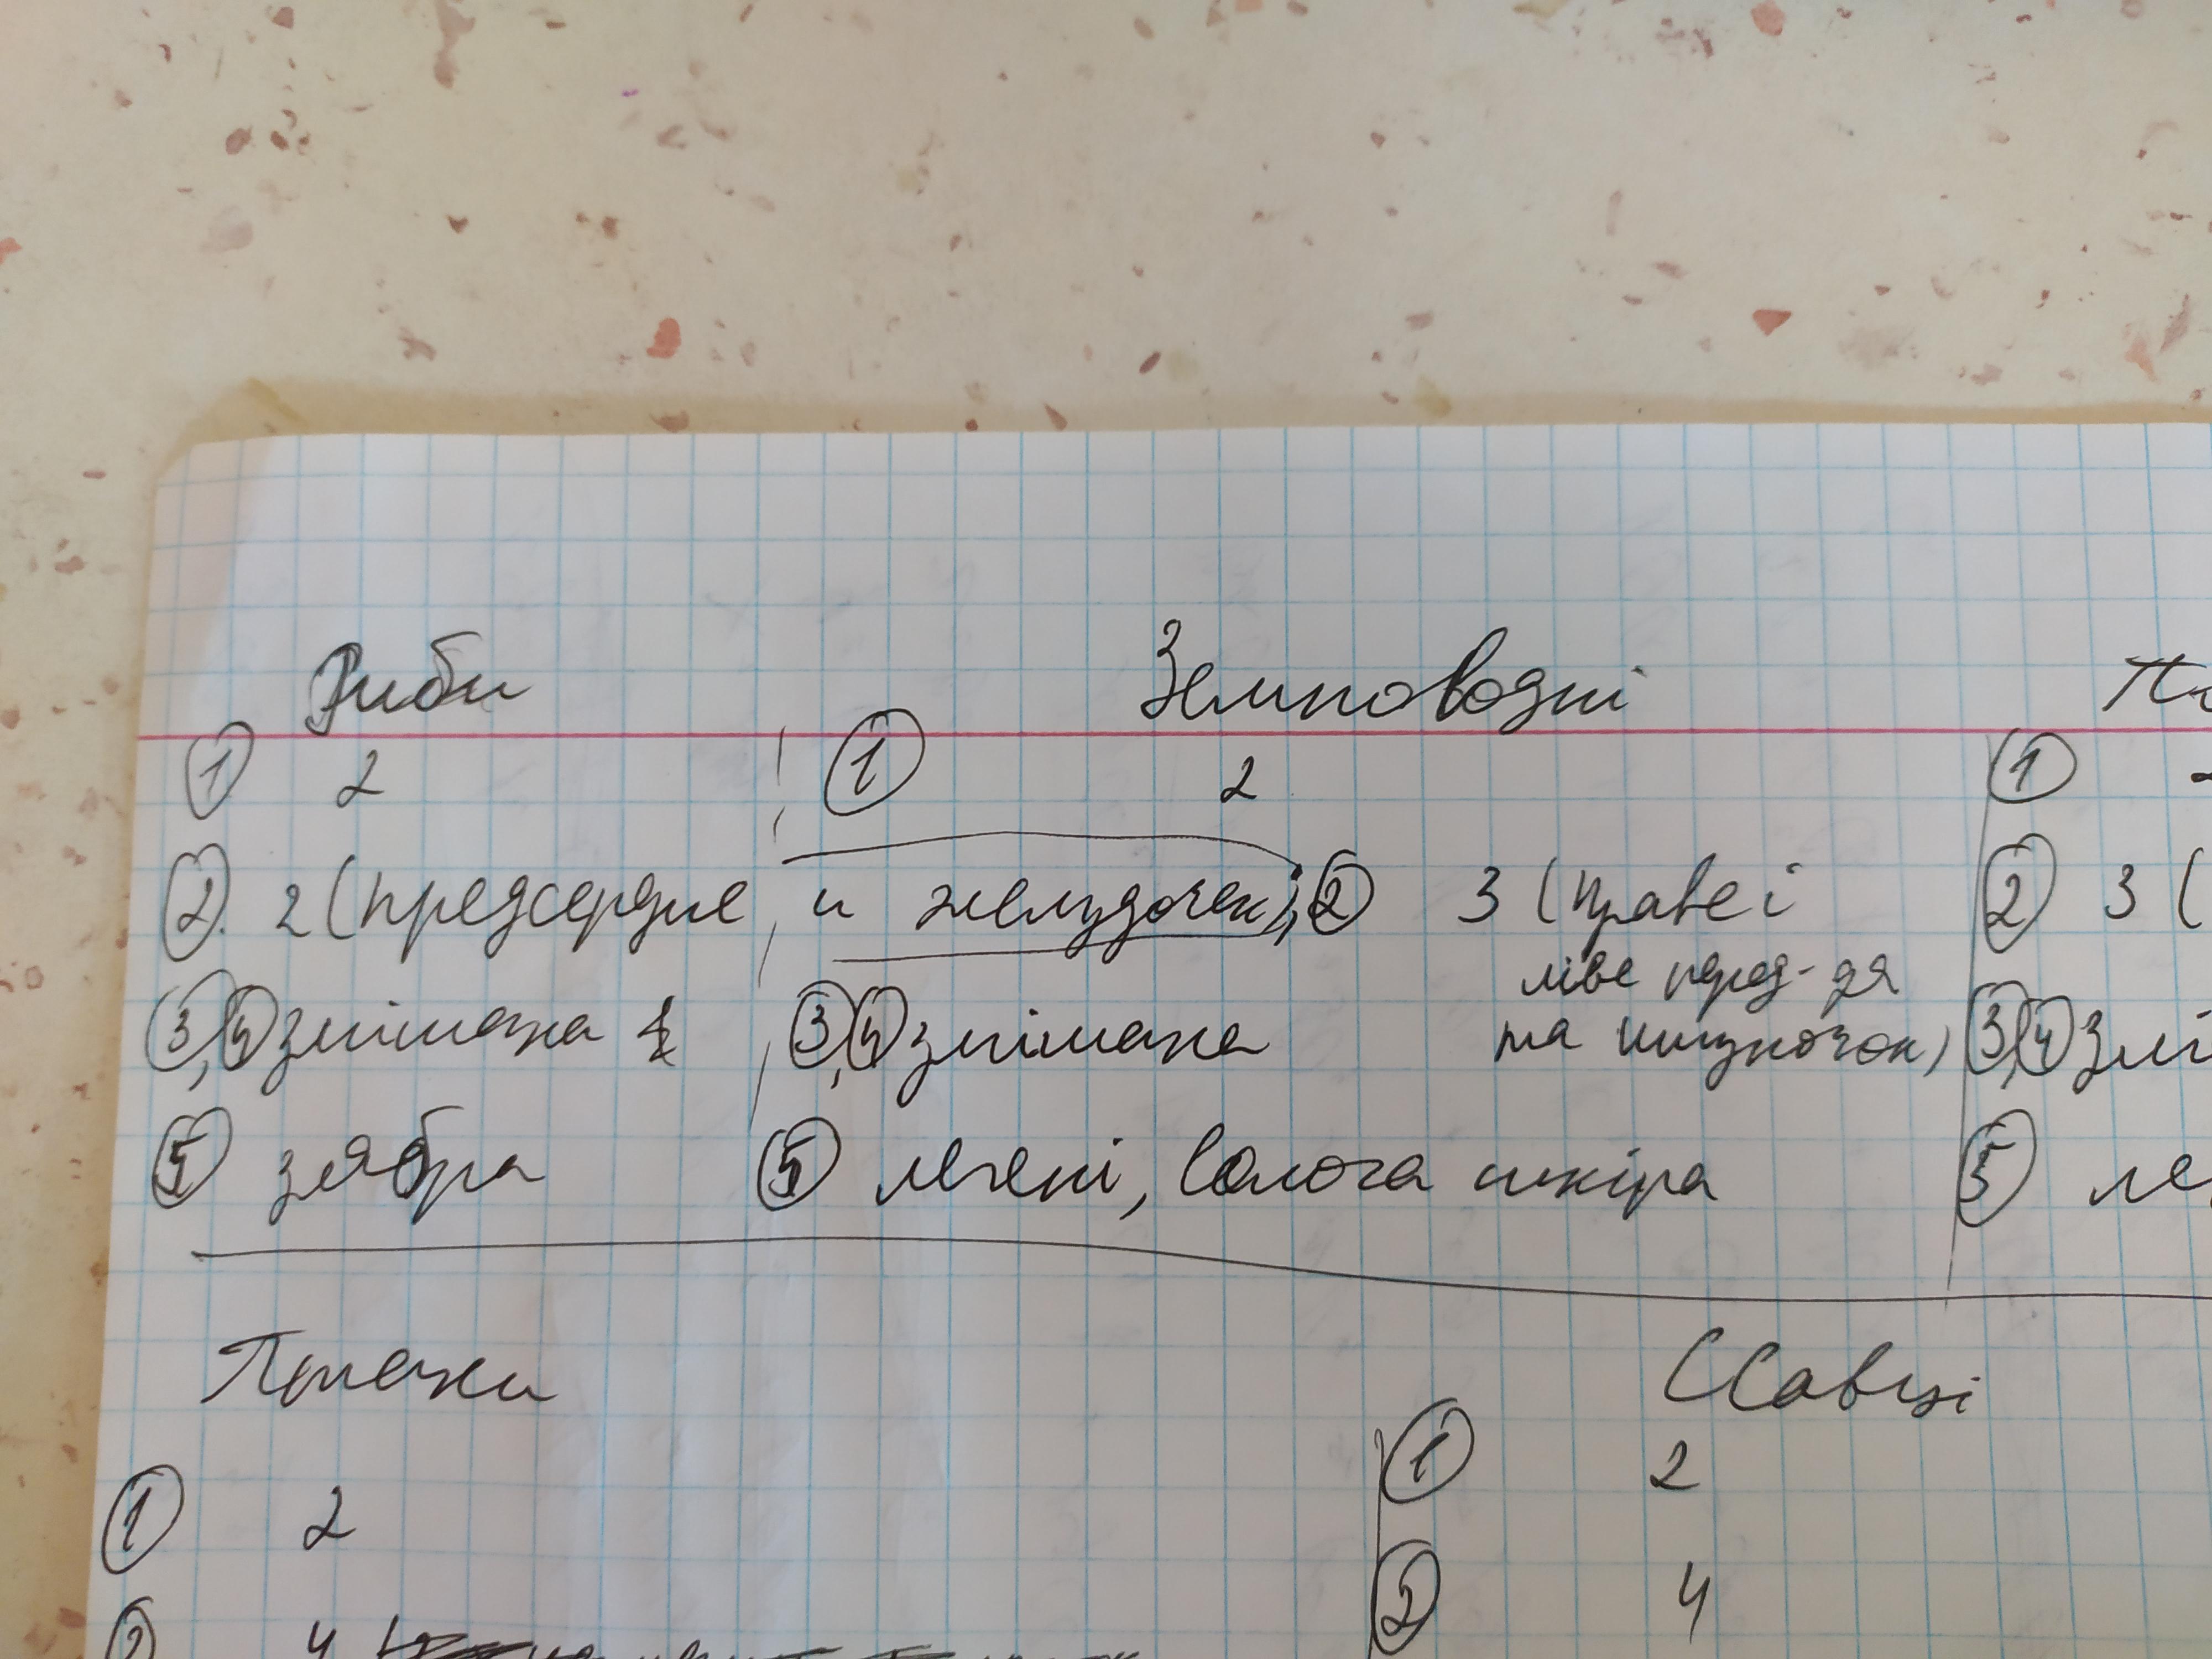 Риби Земноводні
① 2 ① 2 ①
② 2 (предсердие и желудочек); ② 3 (праве і ② 3 (
ліве перед-дя
③,④ змішана ③,④ змішана та шлуночок) ③,④ змі
⑤ зябра ⑤ легені, волога шкіра ⑤ ле
Птахи Ссавці
① 2 ① 2
② 4 ② 4